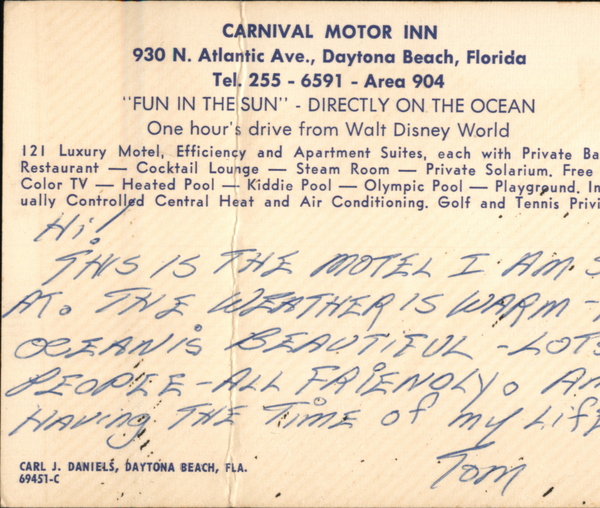 CARNIVAL MOTOR INN
930 N. Atlantic Ave., Daytona Beach, Florida
Tel. 255 - 6591 - Area 904
"FUN IN THE SUN" - DIRECTLY ON THE OCEAN
One hour's drive from Walt Disney World
121 Luxury Motel, Efficiency and Apartment Suites, each with Private Ba
Restaurant — Cocktail Lounge — Steam Room — Private Solarium. Free
Color TV — Heated Pool — Kiddie Pool — Olympic Pool — Playground. In
ually Controlled Central Heat and Air Conditioning. Golf and Tennis Privi
Hi!
THIS IS THE MOTEL I AM S
AT. THE WEATHER IS WARM -
OCEAN IS BEAUTIFUL - LOTS
PEOPLE - ALL FRIENDLY. AM
HAVING THE TIME OF MY LIFE
Tom
CARL J. DANIELS, DAYTONA BEACH, FLA.
69451-C